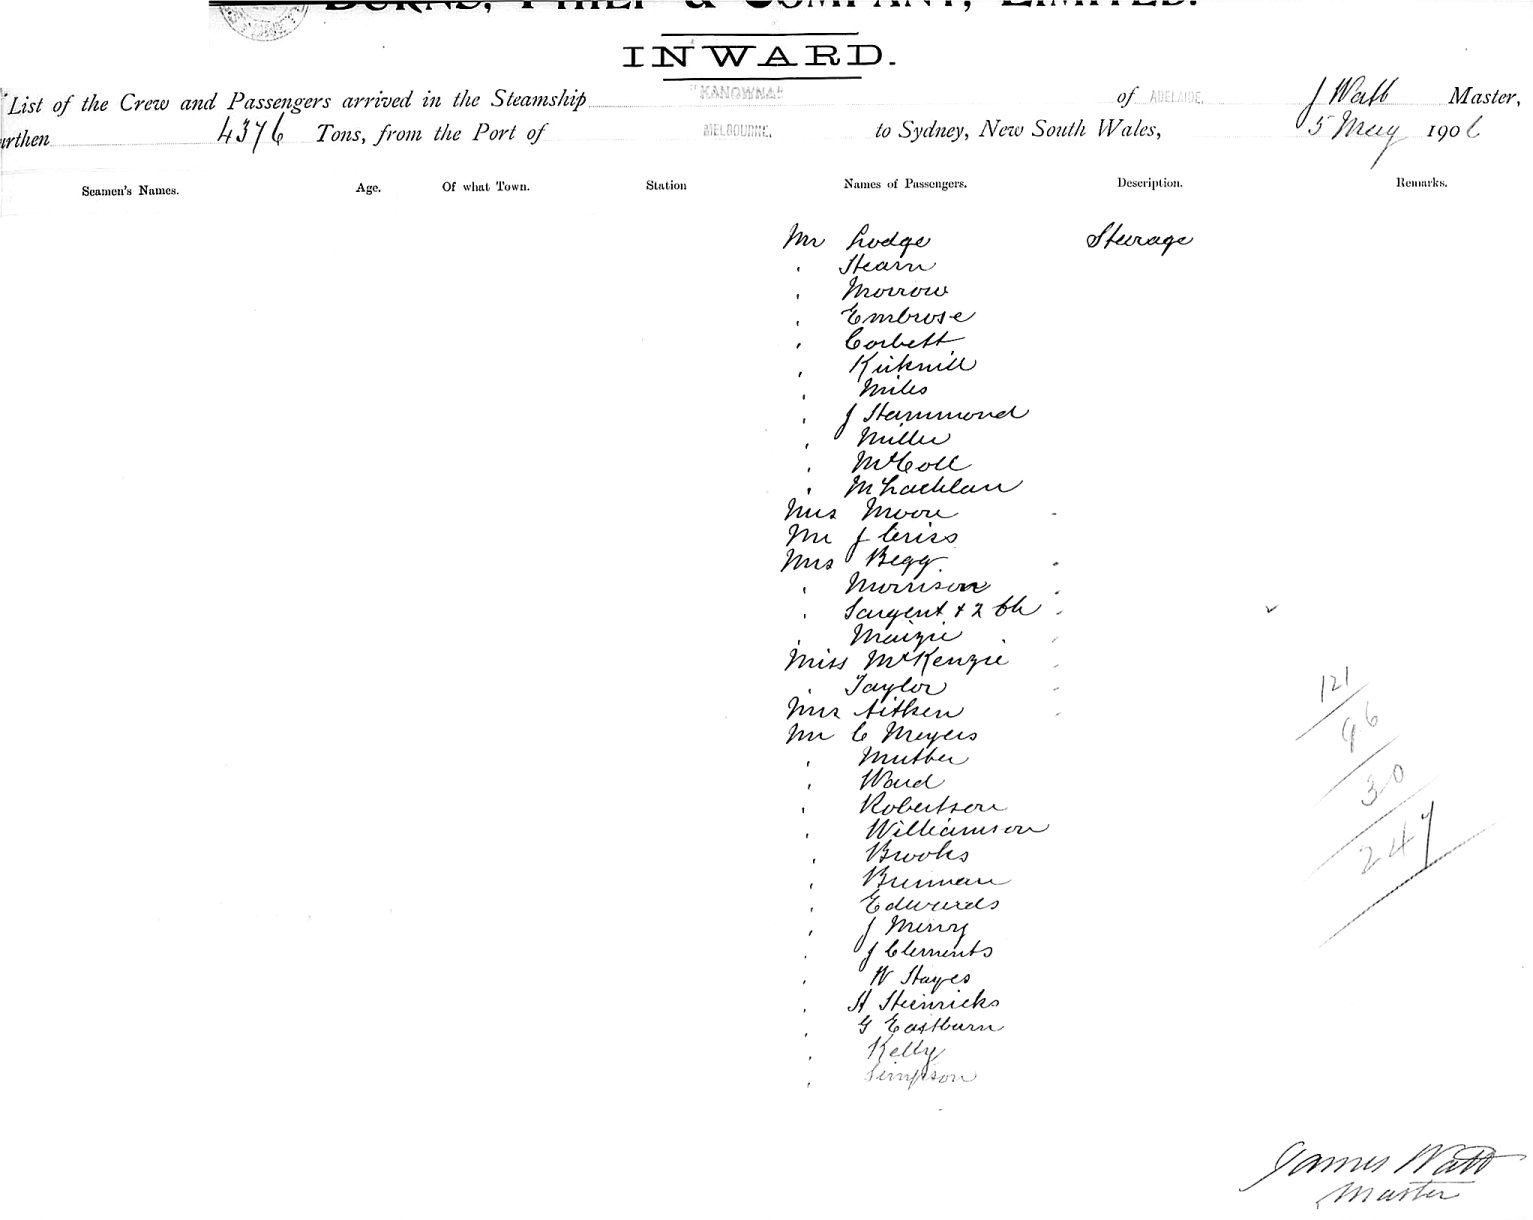 BURNS, PHILP & COMPANY, LIMITED.
INWARD.
List of the Crew and Passengers arrived in the Steamship "KANOWNA" of ADELAIDE, J Watt Master,
urthen 4376 Tons, from the Port of MELBOURNE. to Sydney, New South Wales, 5 May 1906
Seamen's Names. Age. Of what Town. Station Names of Passengers. Description. Remarks.
Mr Lodge Steerage
" Hearn
" Morrow
" Embrose
" Corbett
" Kirknill
" Miles
" J Hammond
" Miller
" McColl
" McLachlan
Mrs Moore "
Mr J Criss
Mrs Begg "
" Morrison "
" Sargent & 2 ch "
" Maizie "
Miss McKenzie "
" Taylor "
Mrs Aitken "
Mr C Meyers
" Mutber
" Ward
" Robertson
" Williamson
" Brooks
" Brennan
" Edwards
" J Merry
" J Clements
" W Hayes
" H Heinricks
" G Eastburn
" Kelly
" Simpson
121
96
30
247
James Watt
Master